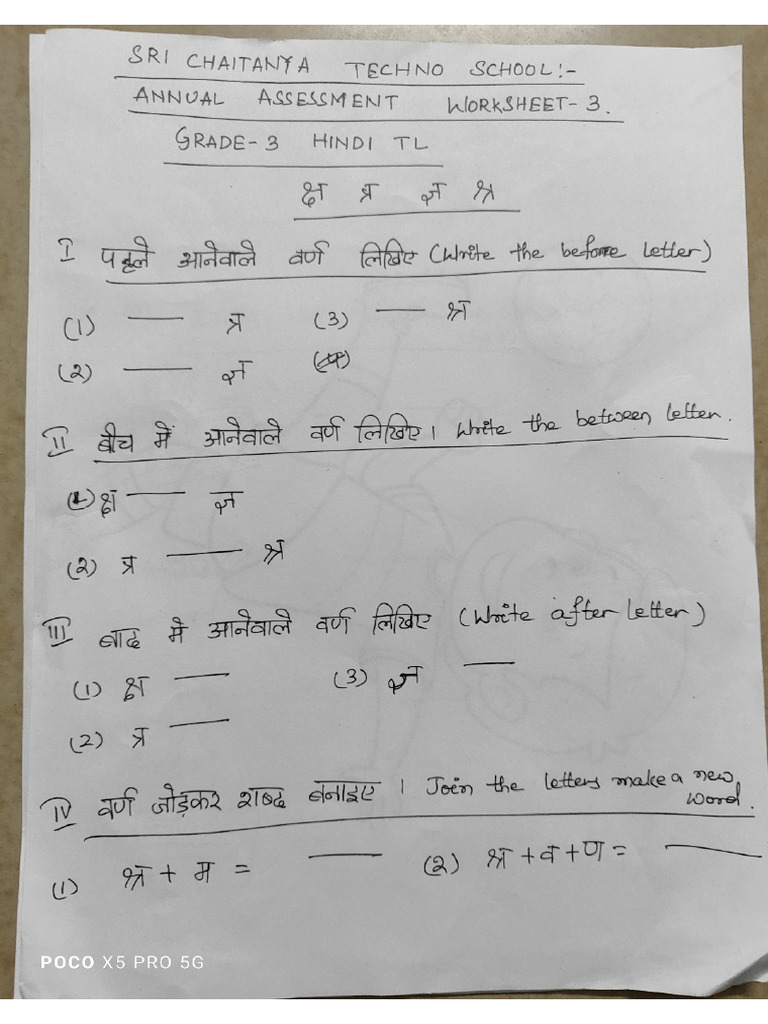 SRI CHAITANYA TECHNO SCHOOL:-
ANNUAL ASSESSMENT WORKSHEET-3.
GRADE-3 HINDI TL
क्ष त्र ज्ञ श्र
I पहले आनेवाले वर्ण लिखिए (Write the before letter)
(1) ___ त्र (3) ___ श्र
(2) ___ ज्ञ
II बीच में आनेवाले वर्ण लिखिए। Write the between letter.
(1) क्ष ___ ज्ञ
(2) त्र ___ श्र
III बाद मे आनेवाले वर्ण लिखिए (Write after letter)
(1) क्ष ___ (3) ज्ञ ___
(2) त्र ___
IV वर्ण जोड़कर शब्द बनाइए। Join the letters make a new
word.
(1) श्र + म = ___ (2) श्र + व + ण = ___
POCO X5 PRO 5G